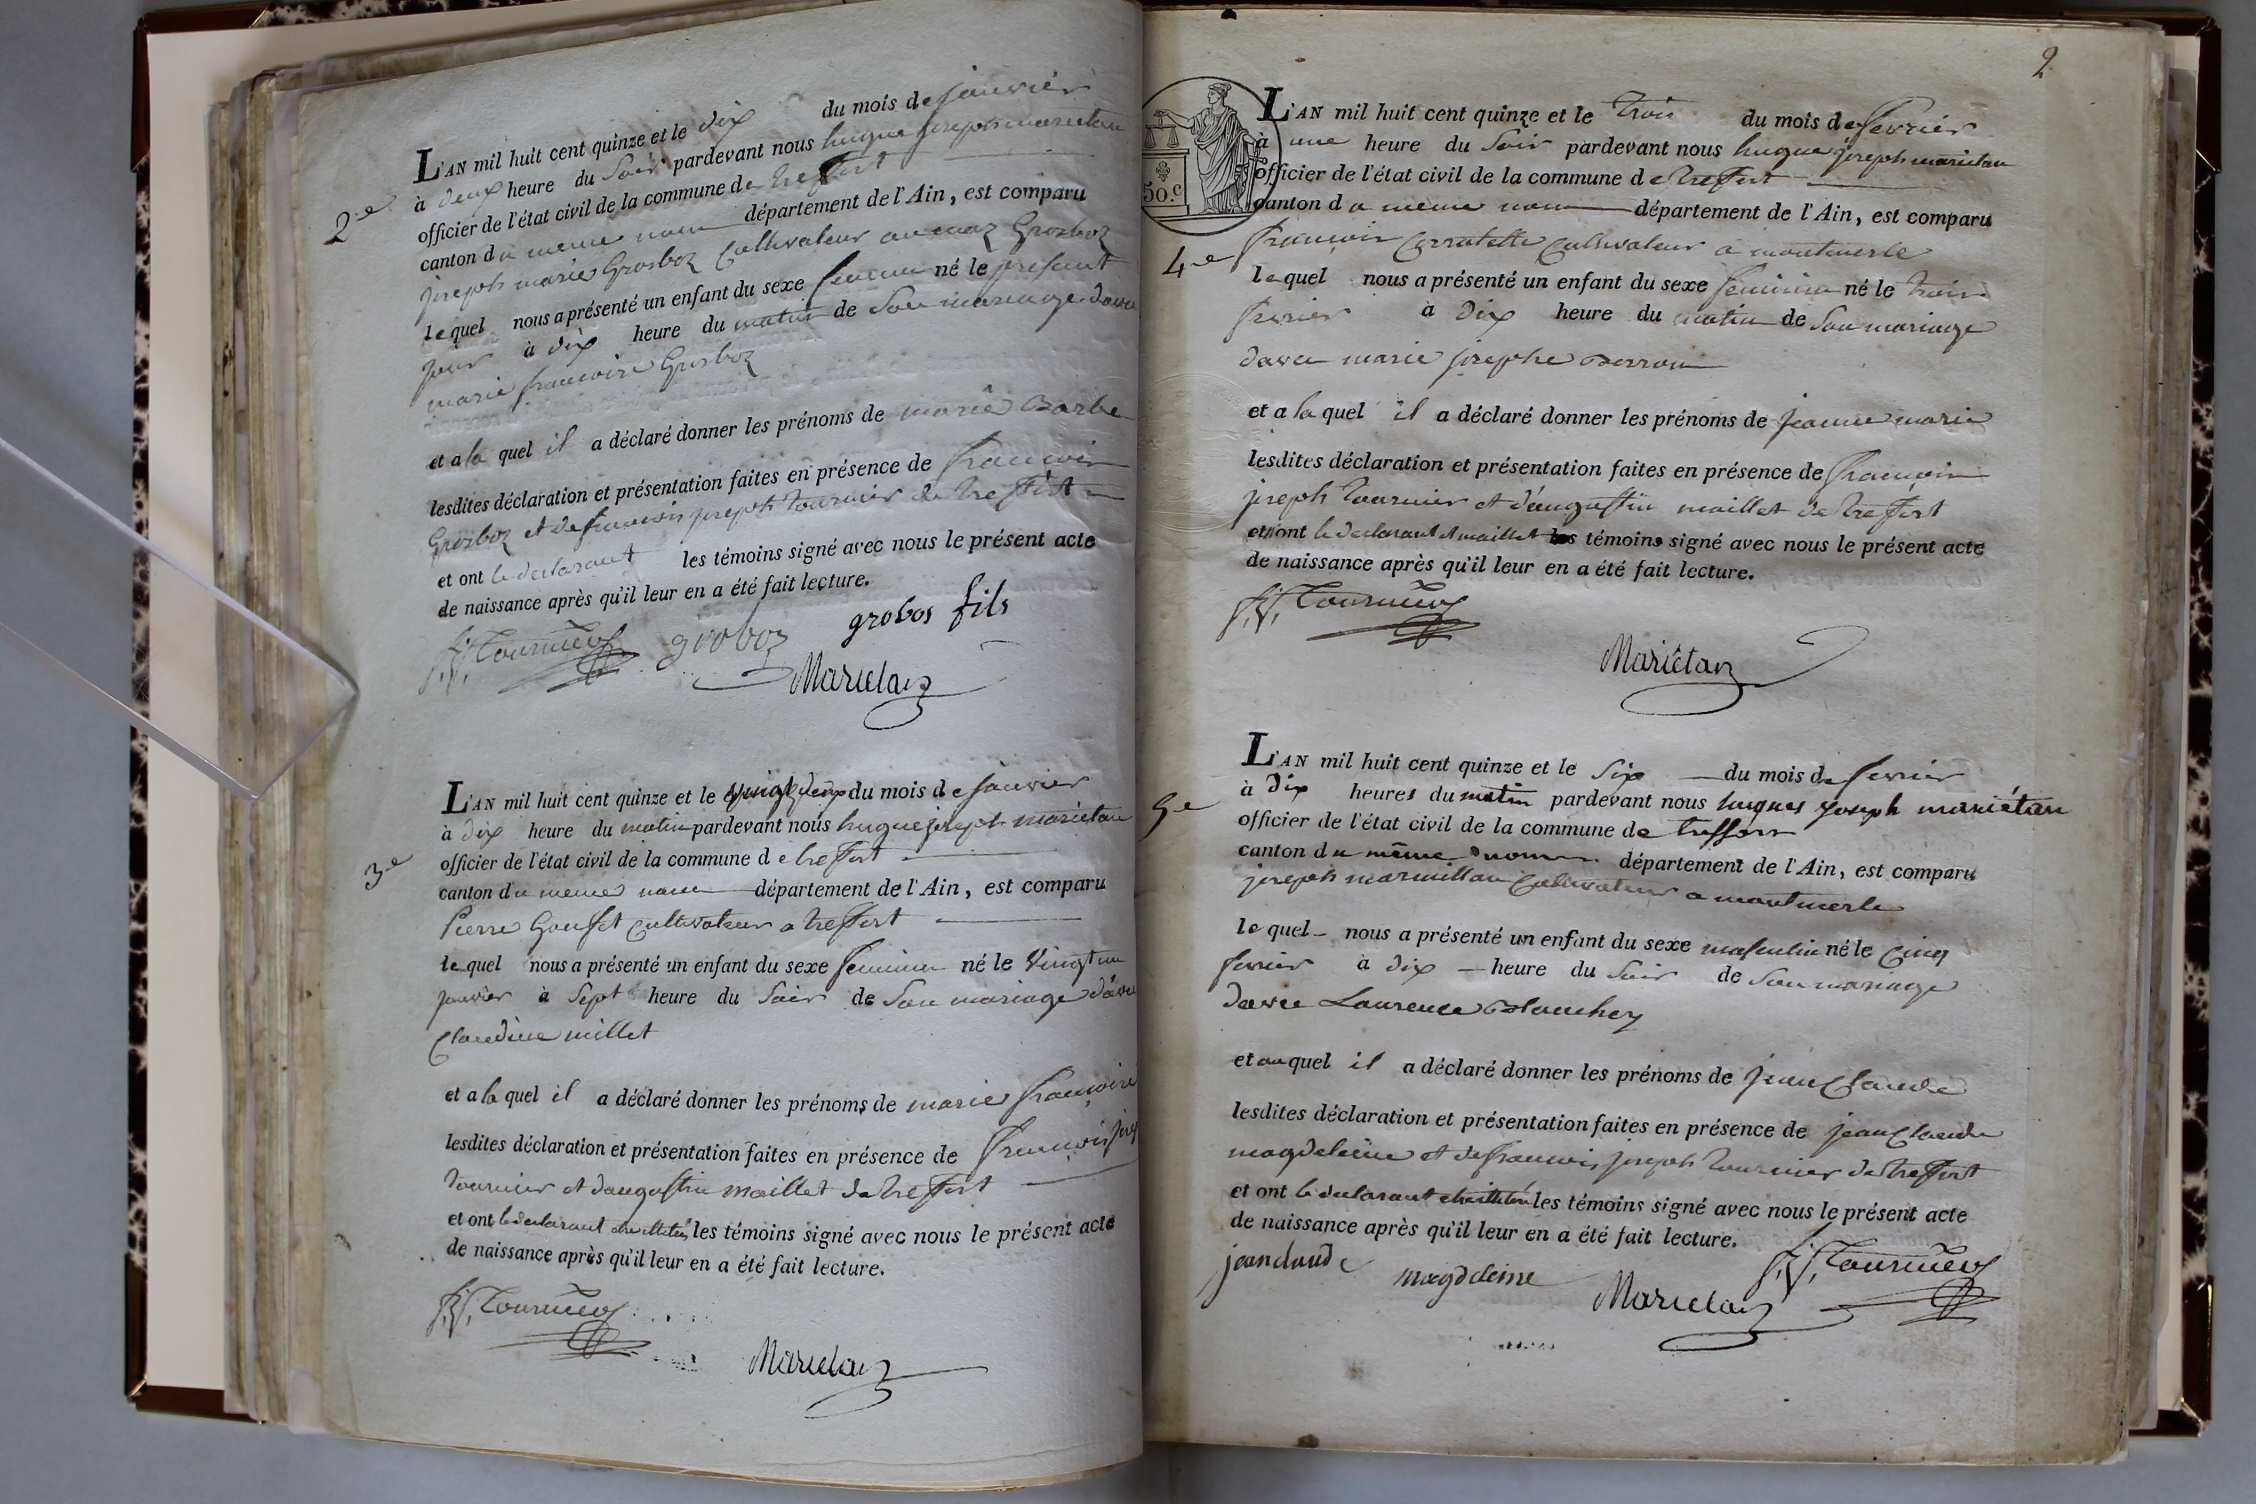 2e
L'AN mil huit cent quinze et le dix du mois de janvier
à deux heure du Soir pardevant nous hugue joseph marietan
officier de l'état civil de la commune de treffort
canton du meme nom département de l'Ain, est comparu
joseph marie Grosboz Cultivateur au maz Grosboz
lequel nous a présenté un enfant du sexe feminin né le présent
jour à dix heure du matin de Son mariage davec
marie francoise Grosboz
et a la quel il a déclaré donner les prénoms de marie Barbe
lesdites déclaration et présentation faites en présence de francois
Grosboz et de francois joseph tournier de treffort
et ont le declarant les témoins signé avec nous le présent acte
de naissance après qu'il leur en a été fait lecture.
f. j. Tournier groboz grobos fils
Marietan
3e
L'AN mil huit cent quinze et le vingt deux du mois de janvier
à dix heure du matin pardevant nous hugue joseph marietan
officier de l'état civil de la commune de treffort
canton du meme nom département de l'Ain, est comparu
Pierre Goufet Cultivateur a treffort
lequel nous a présenté un enfant du sexe feminin né le Vingt un
janvier à Sept heure du Soir de Son mariage davec
Claudine millet
et a la quel il a déclaré donner les prénoms de marie françoise
lesdites déclaration et présentation faites en présence de francois josep
tournier et daugustin maillet de treffort
et ont le declarant les témoins signé avec nous le présent acte
de naissance après qu'il leur en a été fait lecture.
f. j. Tournier
Marietan
2
50.c
4e
L'AN mil huit cent quinze et le trois du mois de fevrier
à une heure du Soir pardevant nous hugue joseph marietan
officier de l'état civil de la commune de treffort
canton du meme nom département de l'Ain, est comparu
francois Cultivateur a montmerle
lequel nous a présenté un enfant du sexe feminin né le trois
fevrier à dix heure du matin de Son mariage
davec marie josephe
et a la quel il a déclaré donner les prénoms de jeanne marie
lesdites déclaration et présentation faites en présence de francois
joseph tournier et d'augustin maillet de treffort
et ont le declarant et maillet les témoins signé avec nous le présent acte
de naissance après qu'il leur en a été fait lecture.
f. j. Tournier
Mariétan
5e
L'AN mil huit cent quinze et le Six du mois de fevrier
à dix heures du matin pardevant nous hugues joseph mariétan
officier de l'état civil de la commune de treffort
canton du même nom département de l'Ain, est comparu
joseph marmillon Cultivateur a montmerle
lequel nous a présenté un enfant du sexe masculin né le Cinq
fevrier à dix heure du Soir de Son mariage
davec Laurence Blanchey
et au quel il a déclaré donner les prénoms de jean Claude
lesdites déclaration et présentation faites en présence de jean Claude
magdeleine et de francois joseph tournier de treffort
et ont le declarant les témoins signé avec nous le présent acte
de naissance après qu'il leur en a été fait lecture.
jean claude magdeleine Marietan f. j. Tournier